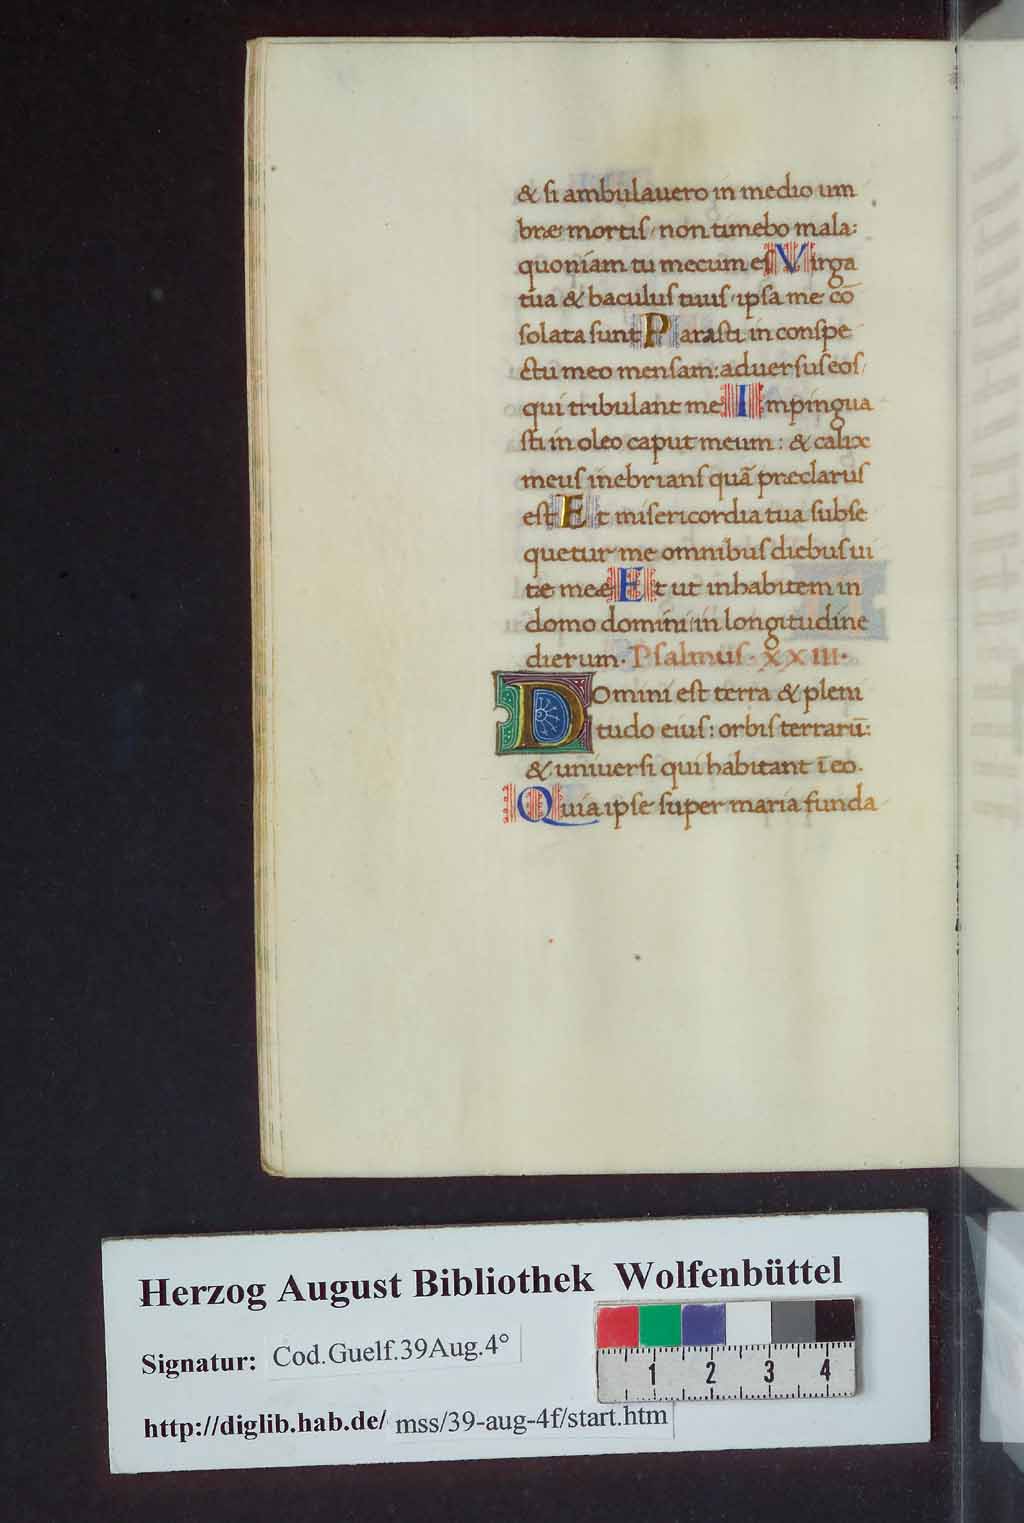 & si ambulauero in medio um
bræ mortis, non timebo mala:
quoniam tu mecum es Virga
tua & baculus tuus, ipsa me cō
solata sunt Parasti in conspe
ctu meo mensam: aduersus eos,
qui tribulant me Impingua
sti in oleo caput meum: & calix
meus inebrians quā præclarus
est Et misericordia tua subse
quetur me omnibus diebus ui
tæ meæ Et ut inhabitem in
domo domini in longitudine
dierum. Psalmus. XXIII.
Domini est terra & pleni
tudo eius: orbis terrarū:
& uniuersi qui habitant ī eo.
Quia ipse super maria funda
Herzog August Bibliothek Wolfenbüttel
Signatur: Cod.Guelf.39Aug.4°
1 2 3 4
http://diglib.hab.de/ mss/39-aug-4f/start.htm